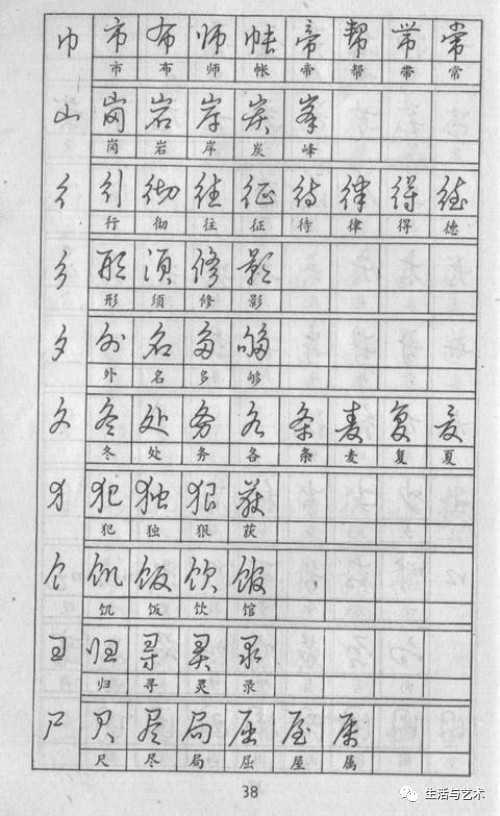 巾 市 布 师 帐 帝 帮 带 常
市 布 师 帐 帝 帮 带 常
山 岗 岩 岸 炭 峰
岗 岩 岸 炭 峰
彳 行 彻 往 征 待 律 得 德
行 彻 往 征 待 律 得 德
彡 形 须 修 影
形 须 修 影
夕 外 名 多 够
外 名 多 够
夂 冬 处 务 各 条 麦 复 夏
冬 处 务 各 条 麦 复 夏
犭 犯 独 狠 获
犯 独 狠 获
饣 饥 饭 饮 馆
饥 饭 饮 馆
彐 归 寻 灵 录
归 寻 灵 录
尸 尺 尽 局 屈 屋 属
尺 尽 局 屈 屋 属
38
生活与艺术